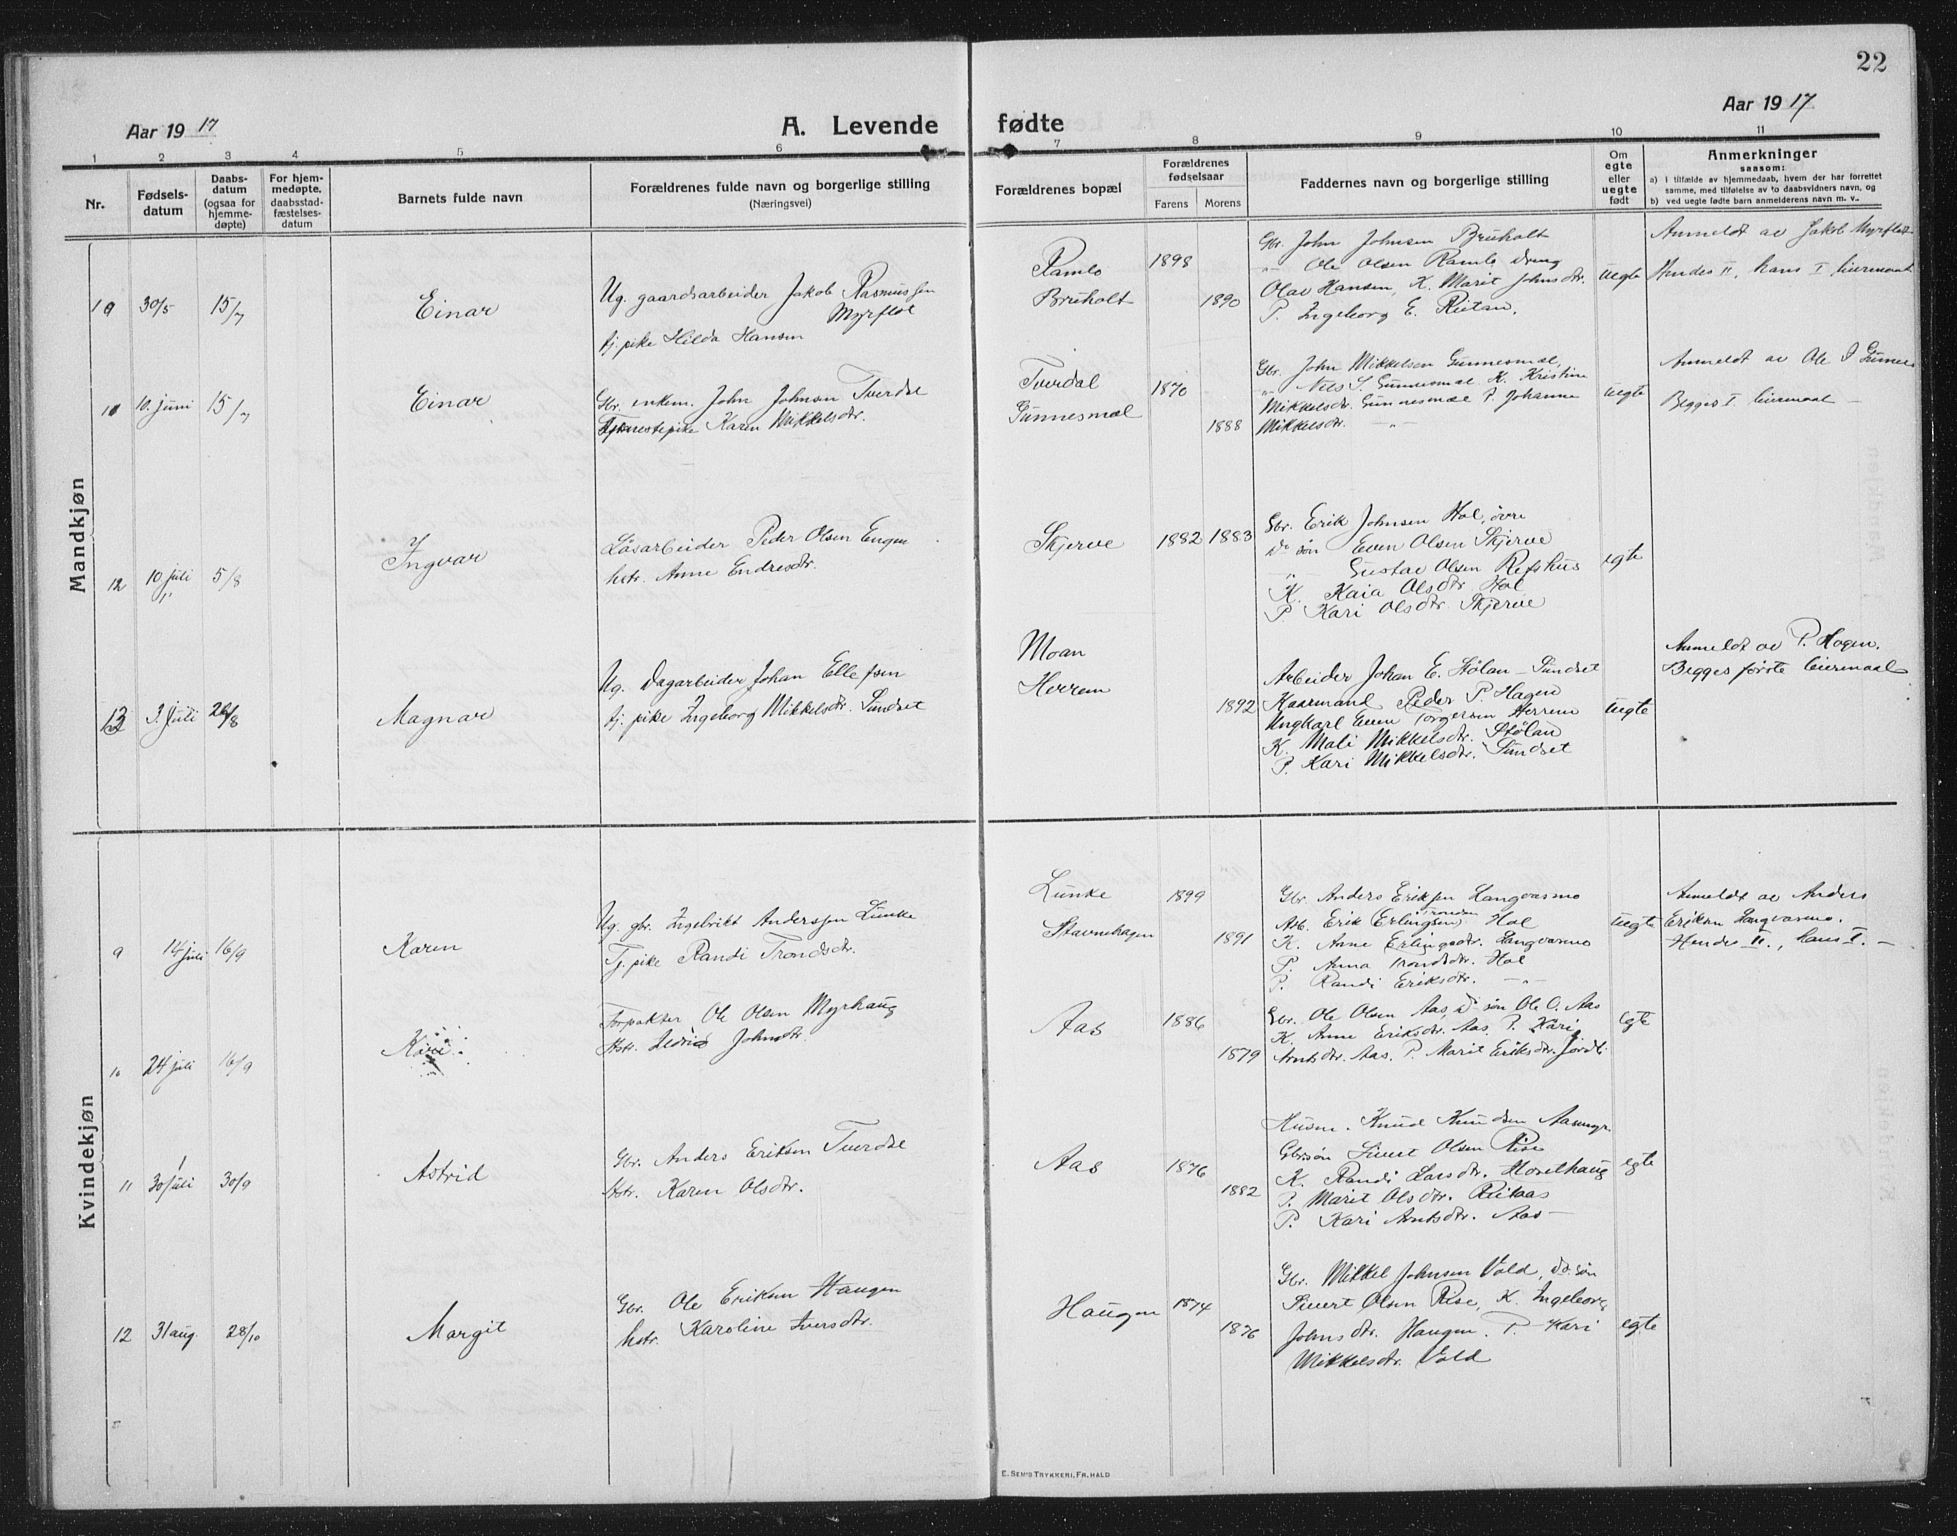 22
Aar 1917
A. Levende fødte
Aar 1917
1 2 3 4 5 6 7 8 9 10 11
Nr.
Fødsels-
datum
Daabs-
datum
(ogsaa for
hjemme-
døpte)
For hjem-
medøpte,
daabsstad-
fæstelses-
datum
Barnets fulde navn
Forældrenes fulde navn og borgerlige stilling
(Næringsvei)
Forældrenes bopæl
Forældrenes
fødselsaar
Farens
Morens
Faddernes navn og borgerlige stilling
Om
egte
eller
uegte
født
Anmerkninger
saasom:
a) i tilfælde av hjemmedaab, hvem der har forrettet
samme, med tilføielse av to daabsvidners navn, og
b) ved uegte fødte barn anmelderens navn m. v.
Mandkjøn
10
30/5
15/7
Einar
Ug. gaardsarbeider Jakob Rasmussen
Myrflot
tj. pike Hilda Hansen
Ramlo
Bruholt
1898
1890
Gbr. John Johnsen Bruholt
" Ole Olsen Ramlo dreng
Olav Hansen, K. Marit Johnsdtr.
P. Ingeborg E. Reitan.
uegte
Anmeldt av Jakob Myrflot
Hendes II, hans I leiermaal
11
10. juni
15/7
Einar
Gbr. enkem. John Johnsen Tverdal
Tjenestepike Karen Mikkelsdtr.
Tverdal
Gunnesmæl
1870
1888
Gbr. John Mikkelsen Gunnesmæl,
" Nils S. Gunnesmæl K. Kristine
Mikkelsdtr. Gunnesmæl P. Johanne
Mikkelsdtr. - " -
uegte
Anmeldt av Ole J Gunnes
Begges I. leiermaal -
12
10 juli
5/8
Ingvar
Løsarbeider Peder Olsen Engen
hstr. Anne Endresdtr.
Skjerve
1882
1883
Gbr. Erik Johnsen Hol, øvre
do søn Even Olsen Skjerve
" Gustav Olsen Refshus
K. Kaia Olsdtr. Hol
P. Kari Olsdtr. Skjerve
egte
13
3. juli
26/8
Magnar
Ug. Dagarbeider Johan Ellefsen
tj. pike Ingeborg Mikkelsdtr. Sundset
Moan
Herrem
1892
Arbeider Johan E. Hølan - Sundset
Kaarmand Peder P. Hagen
Ungkarl Even Torgersen Herrem
K. Mali Mikkelsdtr. Stølan
P. Kari Mikkelsdtr. Sundset
uegte
Anmeldt av P. Hagen.
Begges første leiermaal
Kvindekjøn
9
14 juli
16/9
Karen
Ug. gbr. Ingebrikt Anderssen Lunke
Tj. pike Randi Trondsdtr.
Lunke
Stavnehagen
1899
1891
Gbr. Anders Eriksen Langvasmo
Trondsen
Arb. Erik Erlingsen Hol
K. Anne Erlingsdtr. Langvasmo
P. Anna Trondsdtr. Hol
P. Randi Eriksdtr. - " -
uegte
Anmeldt av Anders
Eriksen Langvasmo.
Hendes II., hans I. -
10
24 juli
16/9
Kari
Forpakter Ole Olsen Myrhaug
Hstr. Johnsdtr.
Aas
1886
1879
Gbr. Ole Olsen Aas, do søn Ole O. Aas
K. Anne Eriksdtr. Aas, P. Kari
Arntsdtr. Aas. P. Marit Eriksdtr. Jordli
egte
11
30/juli
30/9
Astrid
Gbr. Anders Eriksen Tverdal
Hstr. Karen Olsdtr.
Aas
1876
1882
Husm. Knud Knudsen Aasmyr.
Gbrsøn Sivert Olsen Rise
K. Randi Larsdtr. Hovelhaug
P. Marit Olsdtr. Reitaas
P. Kari Arntsdtr. Aas -
egte
12
31 aug.
28/10
Margit
Gbr. Ole Eriksen Haugen
hstr. Karoline Iversdtr.
Haugen
1874
1876
Gbr. Mikkel Johnsen Vold, do søn
Sivert Olsen Rise, K. Ingeborg
Johnsdtr. Haugen. P. Kari
Mikkelsdtr. Vold
egte
E. Sem's Trykkeri, Fr. Hald